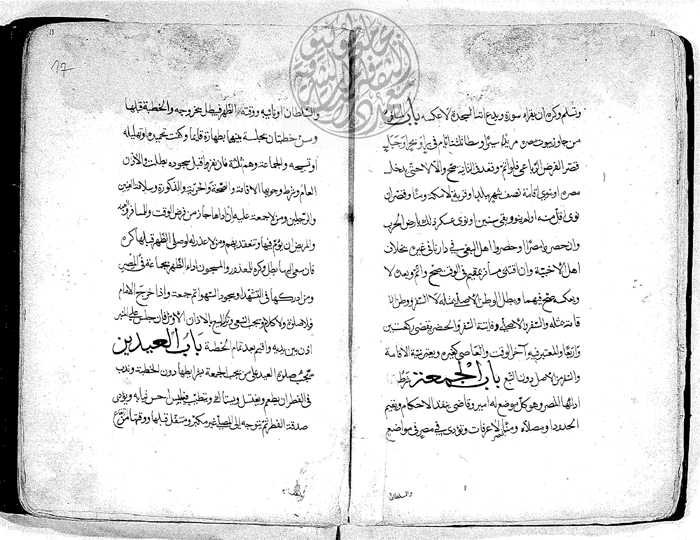 وتسلم وكره ان يقراء سورة ويدع اية السجدة لا عكسه باب المسافر
من جاوز بيوت مصره مريدا سيرا وسطا ثلثة ايام في بر او بحر او جبل
قصر الفرض الرباعي فلو اتم وقعد في الثانية صح والا لا حتى يدخل
مصره او ينوي اقامة نصف شهر ببلد او قرية لا بمكة ومنا وقصر ان
نوى اقل منه او لم ينو وبقي سنين او نوى عسكر ذلك بارض الحرب
وان حصروا مصرا او حصروا اهل البغي في دارنا في غيره بخلاف
اهل الاخبية وان اقتدى مسافر بمقيم في الوقت صح واتم وبعده لا
وبعكسه صح فيهما ويبطل الوطن الاصلي بمثله لا السفر ووطن الا
قامة بمثله والسفر والاصلي وفايتة السفر والحضر تقضى ركعتين
واربعا والمعتبر فيه آخر الوقت والعاصي كغيره ويعتبر نية الاقامة
والسفر من الاصل دون التبع باب الجمعة شرط
ادائها المصر وهو كل موضع له امير وقاضي ينفذ الاحكام ويقيم
الحدود او مصلاه ومنا مصر لا عرفات وتؤدى في مصر في مواضع
والسلطان
17
والسلطان او نايبه ووقت الظهر فيبطل بخروجه والخطبة قبلها
وسن خطبتان بجلسة بينهما بطهارة قايما وكفت تحميدة او تهليلة
او تسبيحة والجماعة وهم ثلثة فان نفروا قبل سجوده بطلت والاذن
العام وشرط وجوبها الاقامة والصحة والحرية والذكورة وسلامة العينين
والرجلين ومن لا جمعة عليه ان اداها جاز من فرض الوقت وللمسافر والعبد
والمريض ان يؤم فيها وتنعقد بهم ومن لا عذر له لو صلى الظهر قبلها كره
فان سعى اليها بطل وكره للمعذور والمسجون اداء الظهر بجماعة في المصر
ومن ادركها في التشهد او سجود السهو اتم جمعة واذا خرج الامام
فلا صلوة ولا كلام ويجب السعي وترك البيع بالاذان الاول فان جلس على المنبر
اذن بين يديه واقيم بعد تمام الخطبة باب العيدين
تجب صلوة العيد على من يجب الجمعة بشرايطها دون الخطبة وندب
في الفطر ان يطعم ويغتسل ويستاك ويتطيب ويلبس احسن ثيابه ويؤدى
صدقة الفطر ثم يتوجه الى المصلى غير مكبر ومتنفل قبلها ووقتها من ارتفاع